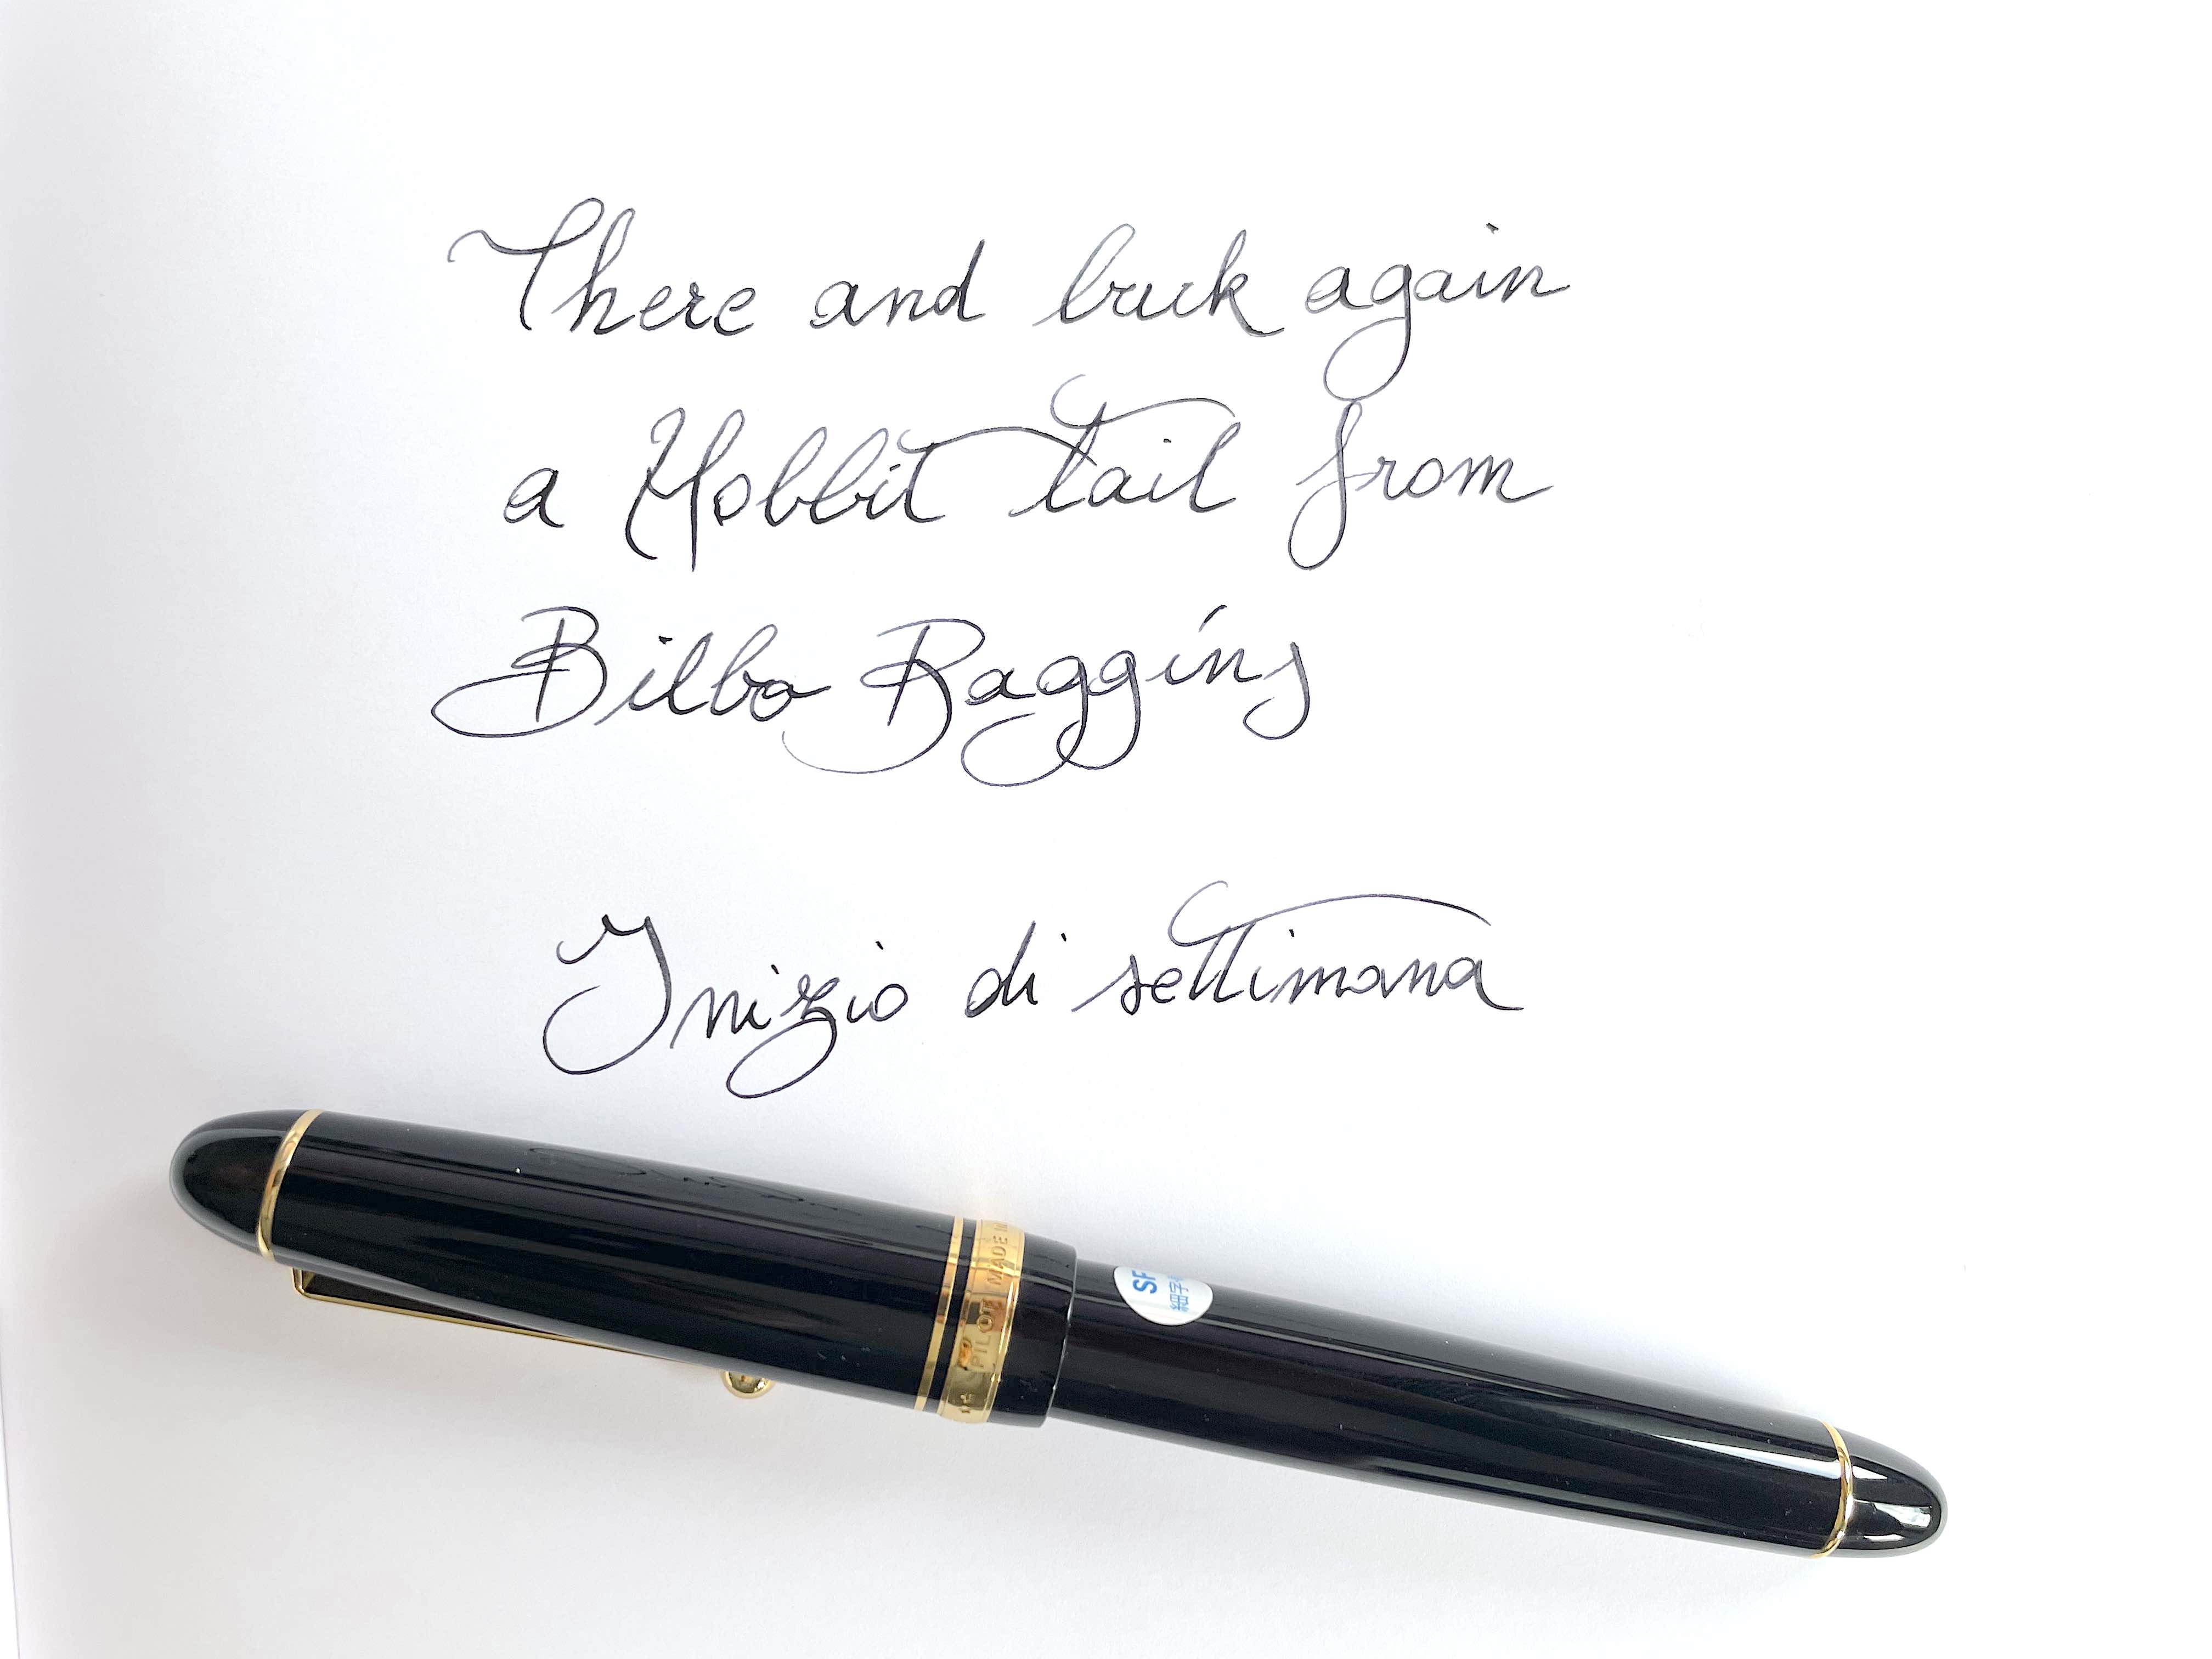 There and back again
a Hobbit tail from
Bilbo Baggins
Inizio di settimana
PILOT MADE
SF
細字